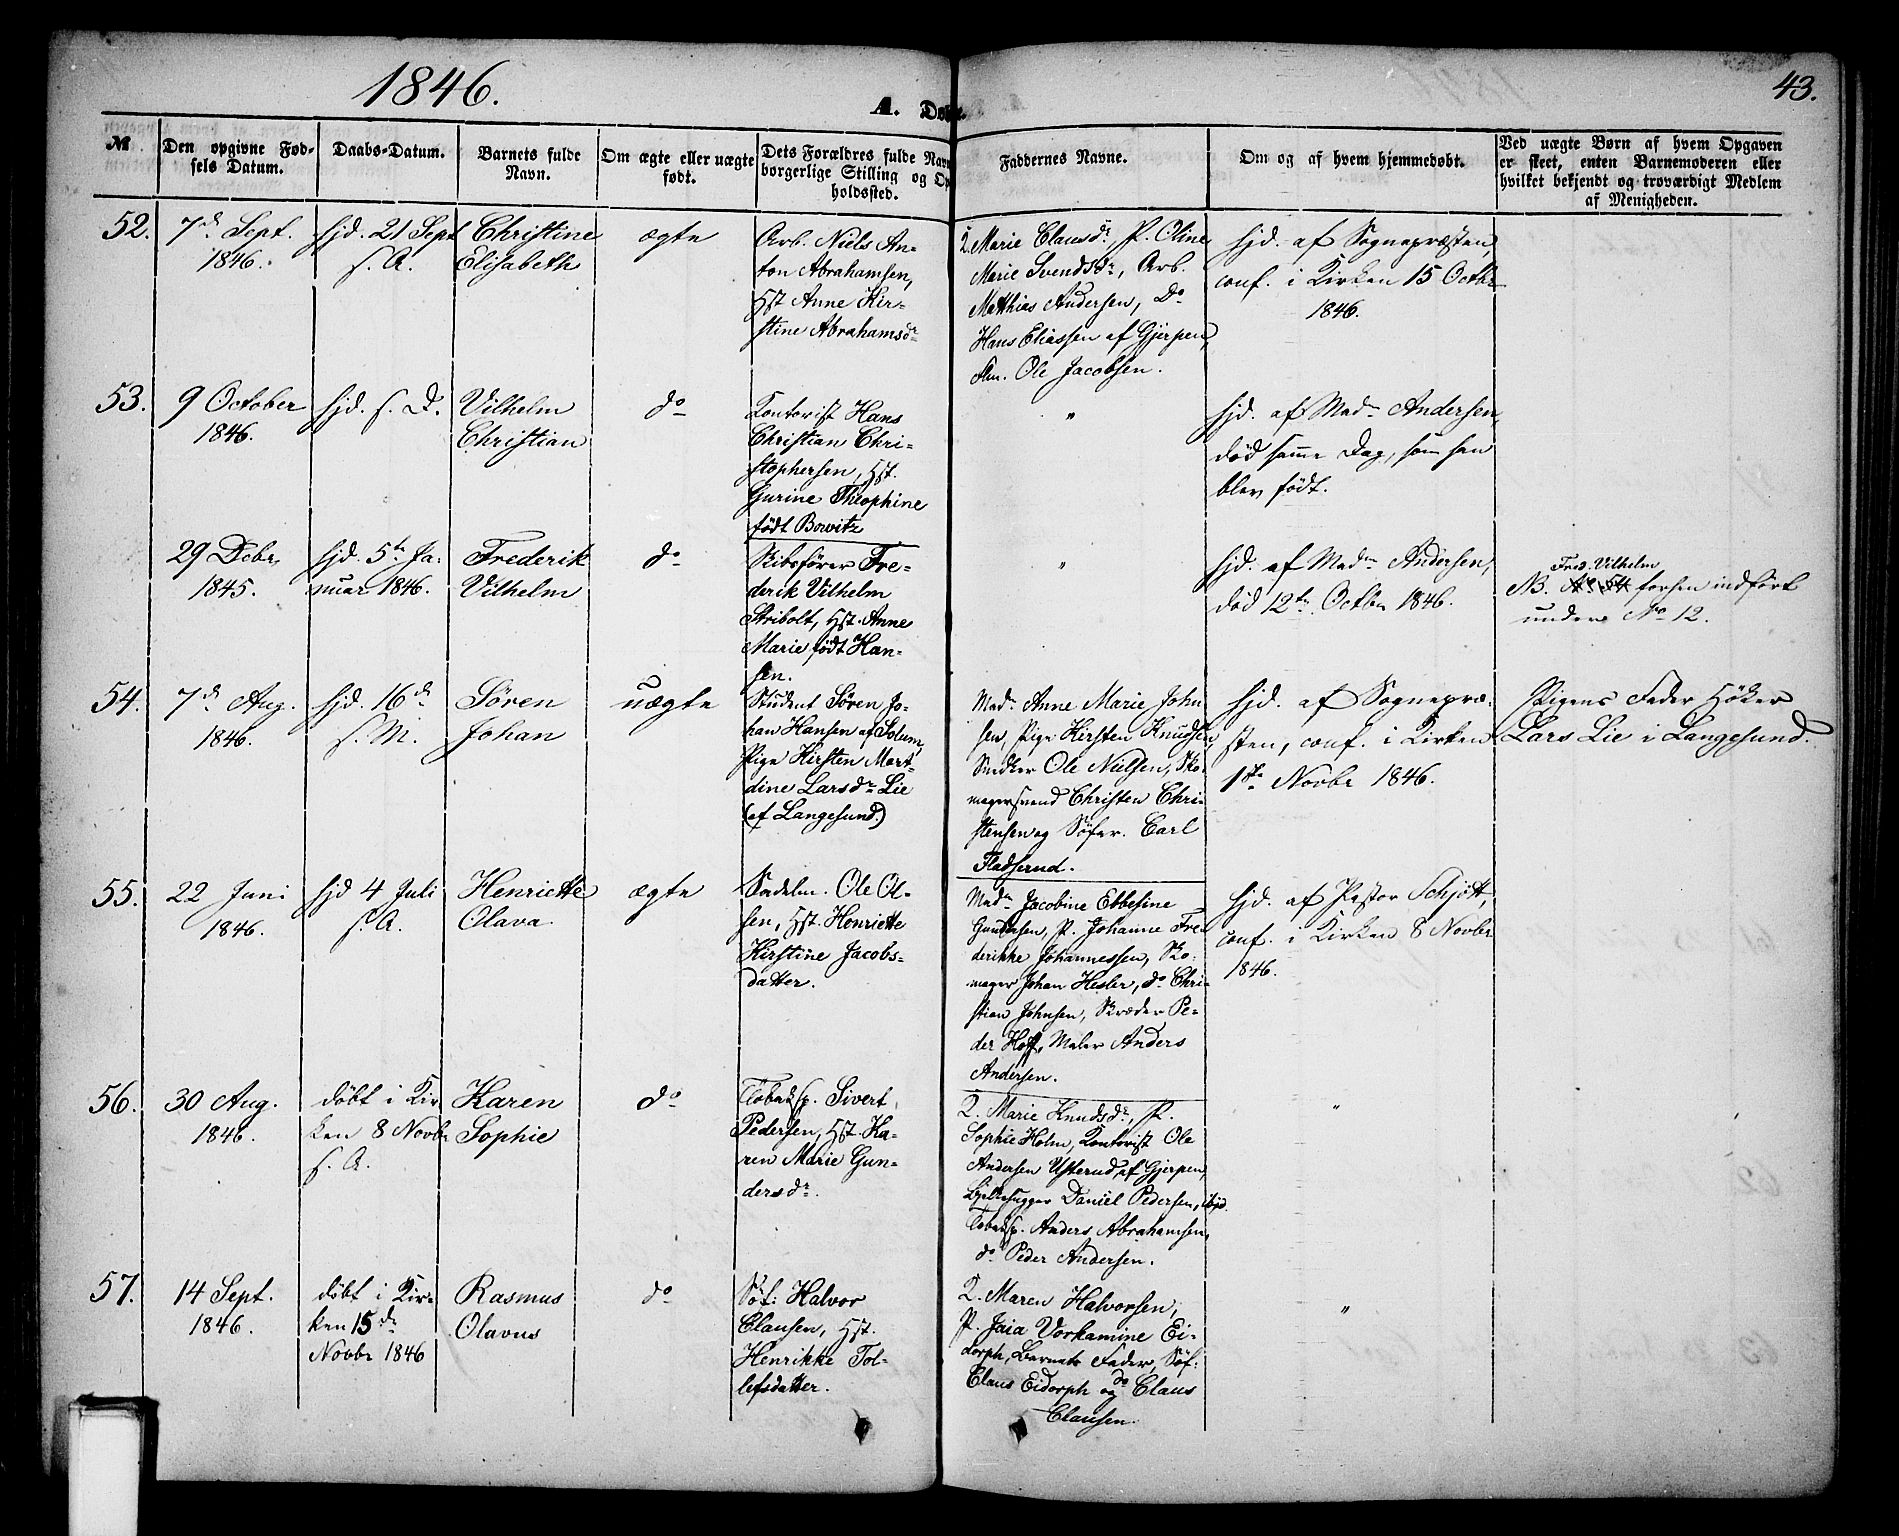 1846.
A. Døbte
43.
№
Den opgivne Fød-
sels Datum.
Daabs-Datum.
Barnets fulde
Navn.
Om ægte eller uægte
født.
Dets Forældres fulde Navn
borgerlige Stilling og Op
holdssted.
Faddernes Navne.
Om og af hvem hjemmedøbt.
Ved uægte Børn af hvem Opgaven
er skeet, enten Barnemoderen eller
hvilket bekjendt og troværdigt Medlem
af Menigheden.
52.
7d. Sept.
1846.
hjd. 21 Sept
s. A.
Christine
Elisabeth
ægte
Arb. Niels An-
ton Abrahamsen,
Hst Anne Kir-
stine Abrahamsdr
Q. Marie Clausdr, P. Oline
Marie Svendsdr, Arb.
Matthias Andersen, Do
Hans Eliassen af Gjerpen,
Ole Jacobsen.
hjd. af Sognepræsten,
conf. i Kirken 15 Octbr
1846.
53.
9 October
1846.
hjd. s. D.
Vilhelm
Christian
do
Kontorist Hans
Christian Chri-
stophersen, Hst.
Gurine Theophine
født Bowitz
"
hjd. af Madm Andersen,
død samme Dag, som han
blev født.
29 Decbr
1845.
hjd. 5te Ja-
nuar 1846.
Frederik
Vilhelm
do
Skibsfører Fre-
derik Vilhelm
Stribolt, Hst. Anne
Marie født Han-
sen.
"
hjd. af Madm Andersen,
død 12te Octbr 1846.
Fred. Vilhelm
NB. No 54 forhen indført
under No 12.
54.
7d. Aug.
1846.
hjd. 16d
s. M.
Søren
Johan
uægte
Student Søren Jo-
han Hansen af Solum,
Pige Kirsten Mart-
dine Larsdr Lie
(af Langesund.)
Madm. Anne Marie John
sen, Pige Kirsten Knudsen,
Snedker Ole Nielsen, Sko-
magersvend Christen Chri-
stensen og Søfar. Carl
Fladserud.
hjd. af Sognepræ-
sten, conf. i Kirken
1ste Novbr 1846.
Pigens Fader Höker
Lars Lie i Langesund.
55.
22 Juni
1846.
hjd 4 Juli
s. A.
Henriette
Olava.
ægte
Sadelm. Ole Ol-
sen, Hst. Henriette
Kirstine Jacobs-
datter.
Madm Jacobine Ebbesine
Gundersen, P. Johanne Fre-
derikke Johannessen, Sko-
mager Johan Hesler, do Chri-
stian Johnsen, Skræder Pe-
der Hoff, Maler Anders
Andersen.
hjd. af Pastor Schjøtt,
conf. i Kirken 8 Novbr
1846.
56.
30 Aug.
1846.
døbt i Kir-
ken 8 Novbr
s. A.
Karen
Sophie
do
Tobaksp. Sivert
Pedersen, Hst. Ka-
ren Marie Gun-
dersdr.
Q. Marie Knudsdr, P.
Sophie Holm, Kontorist Ole
Andersen Usterud af Gjerpen,
Daniel Pedersen, ibid.
Tobaksp. Anders Abrahamsen,
do Peder Andersen.
"
57.
14 Sept.
1846.
døbt i Kir-
ken 15 de
Novbr 1846
Rasmus
Olavus
do
Søf: Halvor
Clausen, Hst.
Henrikke Tol-
lefsdatter.
Q. Maren Halvorsen,
P. Jaia Vorkamine Ei-
dorph, Barnets Fader, Søf:
Claus Eidorph og do Claus
Clausen.
"